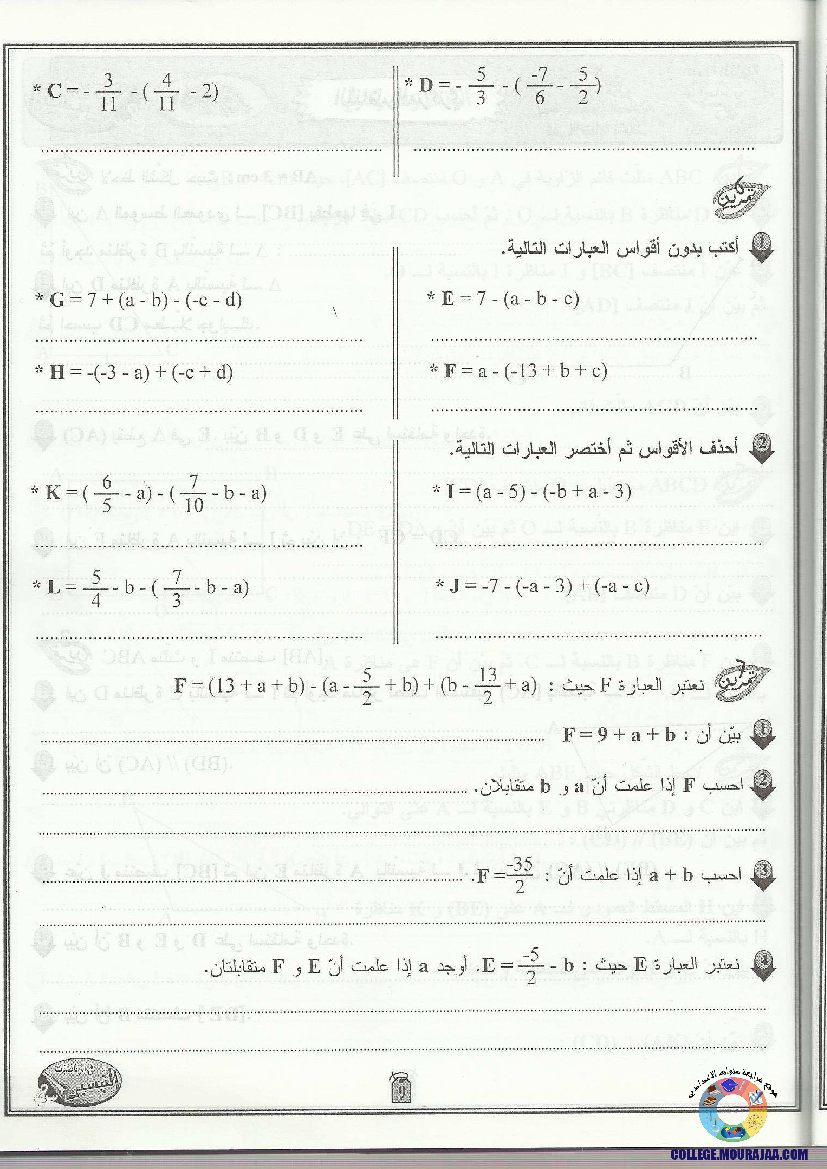 * C = - 3/11 - ( 4/11 - 2)
* D = - 5/3 - ( -7/6 - 5/2 )
تمرين 6
1 أكتب بدون أقواس العبارات التالية.
* E = 7 - (a - b - c)
* G = 7 + (a - b) - (-c - d)
* F = a - (-13 + b + c)
* H = -(-3 - a) + (-c + d)
2 أحذف الأقواس ثم أختصر العبارات التالية.
* I = (a - 5) - (-b + a - 3)
* K = ( 6/5 - a) - ( 7/10 - b - a)
* J = -7 - (-a - 3) + (-a - c)
* L = 5/4 - b - ( 7/3 - b - a)
تمرين 7
نعتبر العبارة F حيث : F = (13 + a + b) - (a - 5/2 + b) + (b - 13/2 + a)
1 بيّن أن : F = 9 + a + b
2 احسب F إذا علمت أنّ a و b متقابلان.
3 احسب a + b إذا علمت أنّ : F = -35/2.
4 نعتبر العبارة E حيث : E = -5/2 - b. أوجد a إذا علمت أنّ E و F متقابلتان.
9
COLLEGE.MOURAJAA.COM